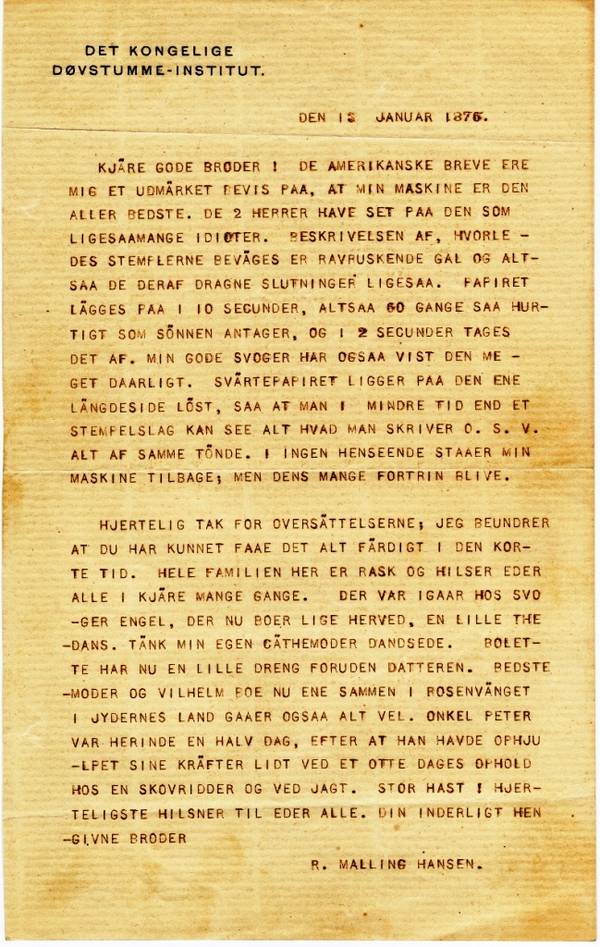 DET KONGELIGE
DØVSTUMME-INSTITUT.
DEN 13 JANUAR 1876.
KJÄRE GODE BRODER ! DE AMERIKANSKE BREVE ERE
MIG ET UDMÄRKET BEVIS PAA, AT MIN MASKINE ER DEN
ALLER BEDSTE. DE 2 HERRER HAVE SET PAA DEN SOM
LIGESAAMANGE IDIOTER. BESKRIVELSEN AF, HVORLE -
DES STEMPLERNE BEVÄGES ER RAVRUSKENDE GAL OG ALT-
SAA DE DERAF DRAGNE SLUTNINGER LIGESAA. PAPIRET
LÄGGES PAA I 10 SECUNDER, ALTSAA 60 GANGE SAA HUR-
TIGT SOM SÖNNEN ANTAGER, OG I 2 SECUNDER TAGES
DET AF. MIN GODE SVOGER HAR OGSAA VIST DEN ME -
GET DAARLIGT. SVÄRTEPAPIRET LIGGER PAA DEN ENE
LÄNGDESIDE LÖST, SAA AT MAN I MINDRE TID END ET
STEMPELSLAG KAN SEE ALT HVAD MAN SKRIVER O. S. V.
ALT AF SAMME TÖNDE. I INGEN HENSEENDE STAAER MIN
MASKINE TILBAGE; MEN DENS MANGE FORTRIN BLIVE.
HJERTELIG TAK FOR OVERSÄTTELSERNE; JEG BEUNDRER
AT DU HAR KUNNET FAAE DET ALT FÄRDIGT I DEN KOR-
TE TID. HELE FAMILIEN HER ER RASK OG HILSER EDER
ALLE I KJÄRE MANGE GANGE. DER VAR IGAAR HOS SVO
-GER ENGEL, DER NU BOER LIGE HERVED, EN LILLE THE
-DANS. TÄNK MIN EGEN CÄTHEMODER DANDSEDE. BOLET-
TE HAR NU EN LILLE DRENG FORUDEN DATTEREN. BEDSTE
-MODER OG VILHELM BOE NU ENE SAMMEN I ROSENVÄNGET
I JYDERNES LAND GAAER OGSAA ALT VEL. ONKEL PETER
VAR HERINDE EN HALV DAG, EFTER AT HAN HAVDE OPHJU
-LPET SINE KRÄFTER LIDT VED ET OTTE DAGES OPHOLD
HOS EN SKOVRIDDER OG VED JAGT. STOR HAST ! HJER-
TELIGSTE HILSNER TIL EDER ALLE. DIN INDERLIGT HEN
-GIVNE BRODER
R. MALLING HANSEN.